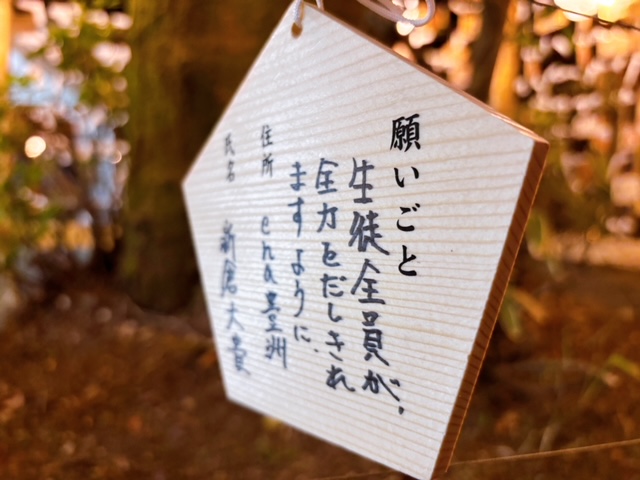 願いごと
生徒全員が、
全力をだしきれ
ますように
住所 ena豊洲
氏名 新倉大貴